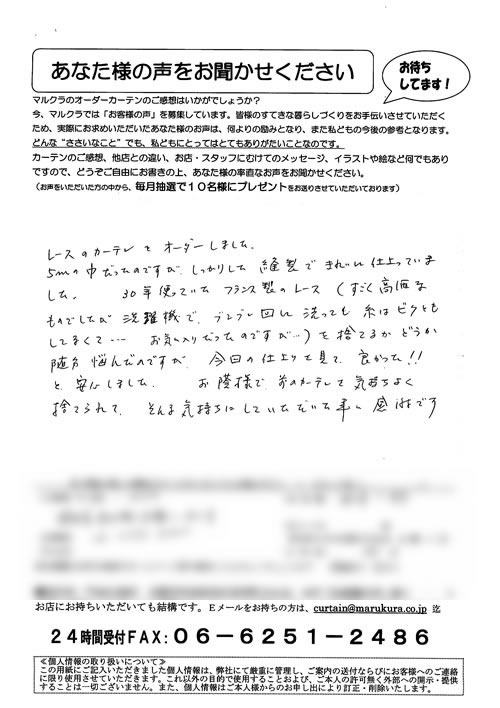 あなた様の声をお聞かせください
お待ち
してます!
マルクラのオーダーカーテンのご感想はいかがでしょうか?
今、マルクラでは「お客様の声」を募集しています。皆様のすてきな暮らしづくりをお手伝いさせていただく
ため、実際にお求めいただいたあなた様のお声は、何よりの励みとなり、また私どもの今後の参考となります。
どんな“ささいなこと”でも、私どもにとってはとてもありがたいことなのです。
カーテンのご感想、他店との違い、お店・スタッフにむけてのメッセージ、イラストや絵など何でもあり
ですので、どうぞご自由にお書きの上、あなた様の率直なお声をお聞かせください。
(お声をいただいた方の中から、毎月抽選で10名様にプレゼントをお送りさせていただいております)
レースのカーテンをオーダーしました。
5mの巾だったのですが、しっかりした縫製できれいに仕上っていま
した。 30年使っていたフランス製のレース(すごく高価な
ものでしたが洗濯機で、ブンブン回し洗っても糸はビクとも
してなくて… お気に入りだったのですが…)を捨てるかどうか
随分悩んだのですが、今回の仕上りを見て、良かった!!
と、安心しました。 お陰様で前のカーテンを気持ちよく
捨てられて、そんな気持ちにしていただいた事に感謝です
お店にお持ちいただいても結構です。Eメールをお持ちの方は、curtain@marukura.co.jp 迄
24時間受付FAX:06-6251-2486
≪個人情報の取り扱いについて≫
この用紙にご記入いただきました個人情報は、弊社にて厳重に管理し、ご案内の送付ならびにお客様へのご連絡
に限り使用させていただきます。これ以外の目的で使用することおよび、ご本人の許可無く外部への開示・提供
することは一切ございません。また、個人情報はご本人様からのお申し出により訂正・削除いたします。